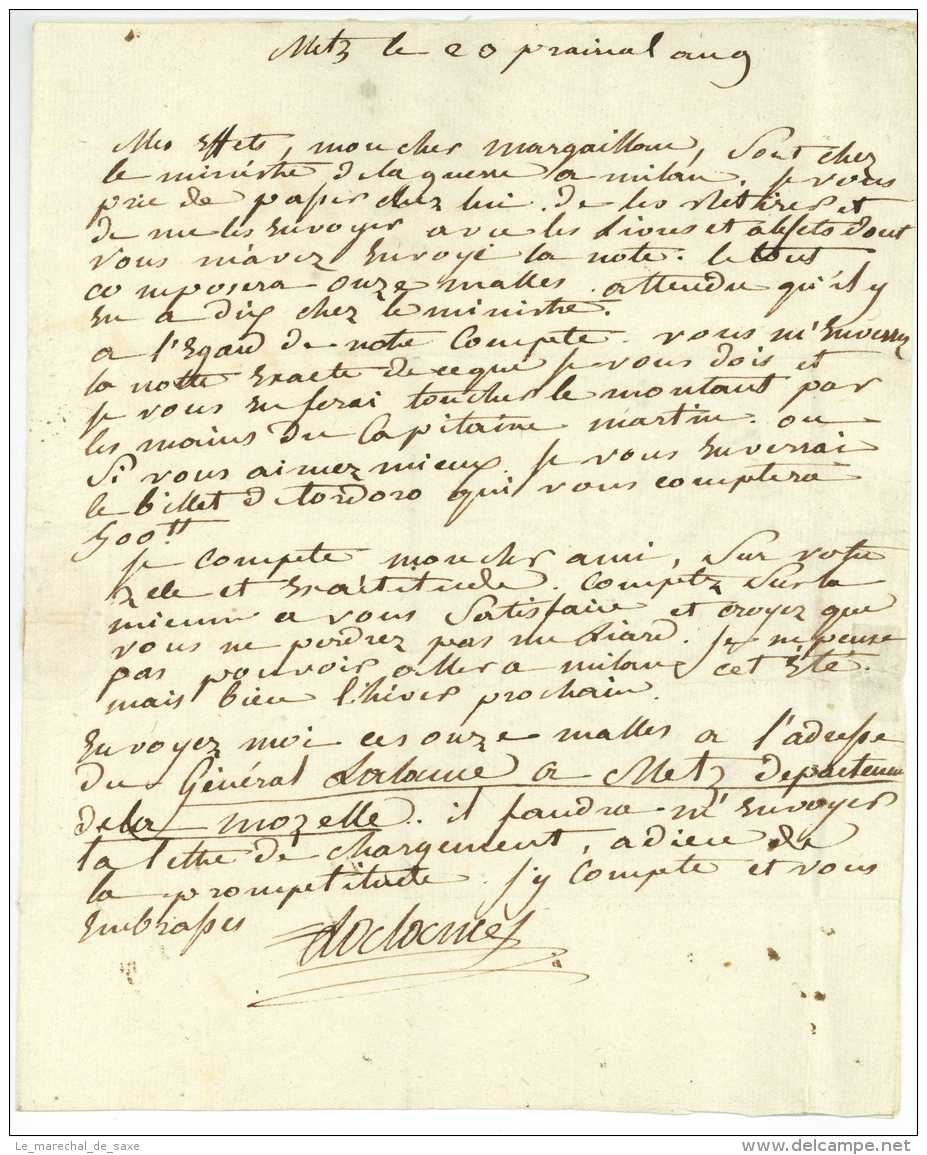 Metz le 20 prairial an 9
Mes Effets, mon cher margaillan, Sont chez
le ministre de la guerre a milan. Je vous
prie de passer chez lui. de les Retirer et
de me les Envoyer avec les Livres et abfets dont
vous m'avez Envoyé la note. le tous
composera onze malles. attendu qu'il y
en a dix chez le ministre.
a l'Egard de notre Compte. vous m'Enverrez
la notte Exacte de ce que Je vous dois et
Je vous en ferai toucher le montant par
les mains du Capitaine martin. ou
Si vous aimez mieux. Je vous Enverrai
le billet de qui vous comptera
500 tt
Je compte mon cher ami, Sur votre
zele et Exactitude. Comptez Sur la
mienne a vous Satisfaire et croyez que
vous ne perdrez pas un Liard. Je ne pense
pas pouvoir aller a milan cet Été.
mais bien l'hiver prochain.
Envoyez moi ces onze malles a l'adresse
du Général Lalance a Metz departement
de la mozelle. il faudra m'Envoyer
la lettre de chargement, adieu de
la promptitude. J'y Compte et vous
Embrasses
Lalance
Le_marechal_de_saxe
www.delcampe.net